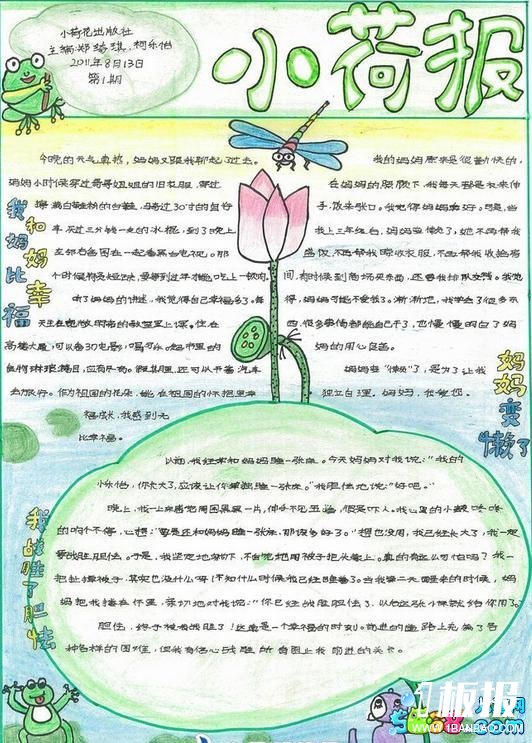 小荷花出版社
主编:郑琦琪,柯乐怡
2011年8月13日
第1期
小荷报
我和妈妈比幸福
今晚的天气真热,妈妈又跟我聊起了过去。
妈妈小时候穿过哥哥姐姐的旧衣服,穿过
车,买过三分钱一支的水棍,到了晚上
左邻右舍围在一起看黑白电视。那
听了妈妈的讲述,我觉得自己幸福多了。每
天坐在宽敞明亮的教室里上课。住在
高楼大厦,可以看3D电影,喝可乐,超市里的
食物琳琅满目,应有尽有。假其里,还可以开着汽车
去旅行。作为祖国的花朵,她在祖国的怀抱里幸
福成长,我感到无
比幸福。
妈妈变懒了
我的妈妈原来是很勤快的,
在妈妈的照顾下,我每天都是衣来伸
手,饭来张口。我觉得妈妈真好。可是,当
我上三年级台,妈妈变懒了,她不再帮我
盛饭,不再帮我晾收衣服,不再帮我收拾房
间,有时候到商场买东西,还要我排队交钱。我觉
得,妈妈可能不爱我了。渐渐地,我学会了很多东
西,很多事情都能自己干了,也慢慢明白了妈
妈的用心良苦。
妈妈变“懒”了,是为了让我
独立自理。妈妈,我爱您。
我战胜了胆怯
以前,我经常和妈妈睡一张床。今天妈妈对我说:“我的
小乐怡,你长大了,应该让你单独睡一张床。”我胆怯地说:“好吧。”
晚上,我一上床感地周围黑黑一片,伸手不见五指,很是吓人。我心里的小鼓咚咚
的响个不停,心想:“要是还和妈妈睡一张床,那该多好了。”想也没用,我已经长大了,我一定
要战胜胆怯。于是,我坚定地躺下,不由地用被子把头蒙上。真的有这么可怕吗?我一
把扯掉被子,其实也没什么呀!不知什么时候我已经睡着了。当我第二天醒来的时候,妈
妈把我搂在怀里,亲切地对我说:“你已经战胜胆怯了,以后这张小床就给你用了。”
胆怯,终于被我战胜了!这真是一个幸福的时刻。前进的道路上充满了各
种各样的困难,但我有信心战胜所有阻止我前进的关卡。
板报
WWW.1BANBAO.COM